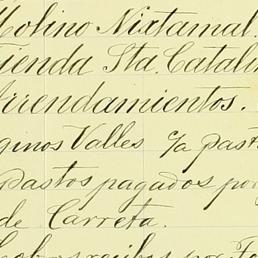 Molino Nixtamal.
Tienda Sta. Catalin
Arrendamientos.
ginos Valles c/a past
pastos pagados por
de Carreta.
recibos por